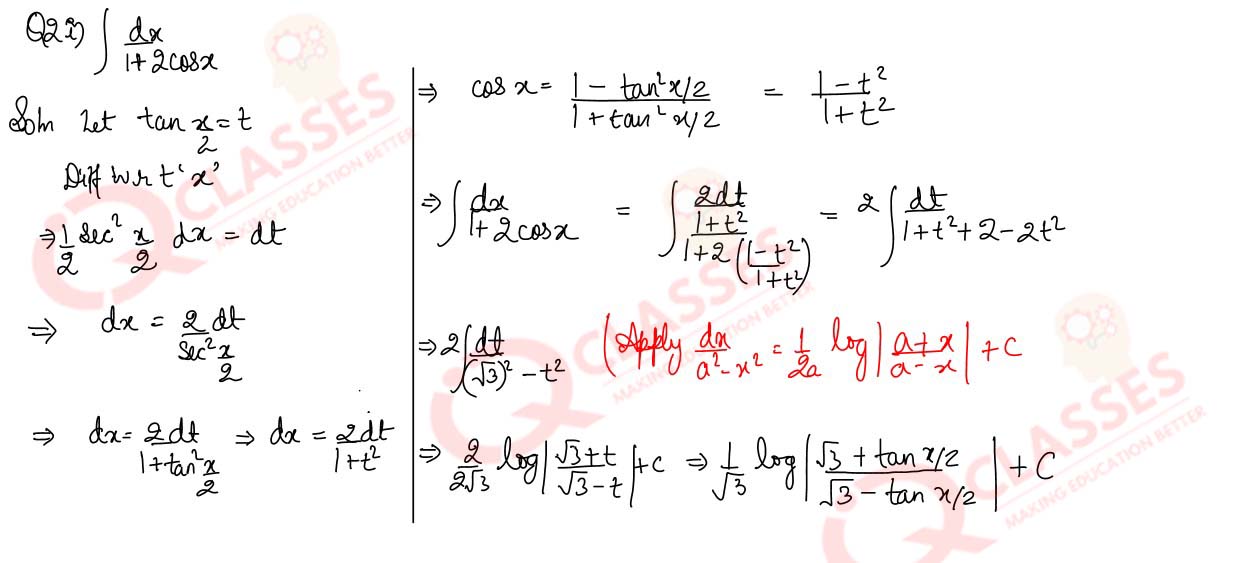 Q2 i) ∫ dx/(1+2cosx)
Soln Let tan x/2 = t
Diff w r t 'x'
⇒ 1/2 sec² x/2 dx = dt
⇒ dx = 2dt/(sec² x/2)
⇒ dx = 2dt/(1+tan² x/2) ⇒ dx = 2dt/(1+t²)
⇒ cos x = (1 - tan² x/2)/(1 + tan² x/2) = (1-t²)/(1+t²)
⇒ ∫ dx/(1+2cosx) = ∫ (2dt/(1+t²))/(1+2((1-t²)/(1+t²))) = 2∫ dt/(1+t²+2-2t²)
⇒ 2∫ dt/((√3)² - t²) (Apply dx/(a²-x²) = 1/2a log|(a+x)/(a-x)| + C
⇒ 2/2√3 log|(√3+t)/(√3-t)| + C ⇒ 1/√3 log|(√3 + tan x/2)/(√3 - tan x/2)| + C
IQ CLASSES
MAKING EDUCATION BETTER
IQ CLASSES
MAKING EDUCATION BETTER
IQ CLASSES
MAKING EDUCATION BETTER